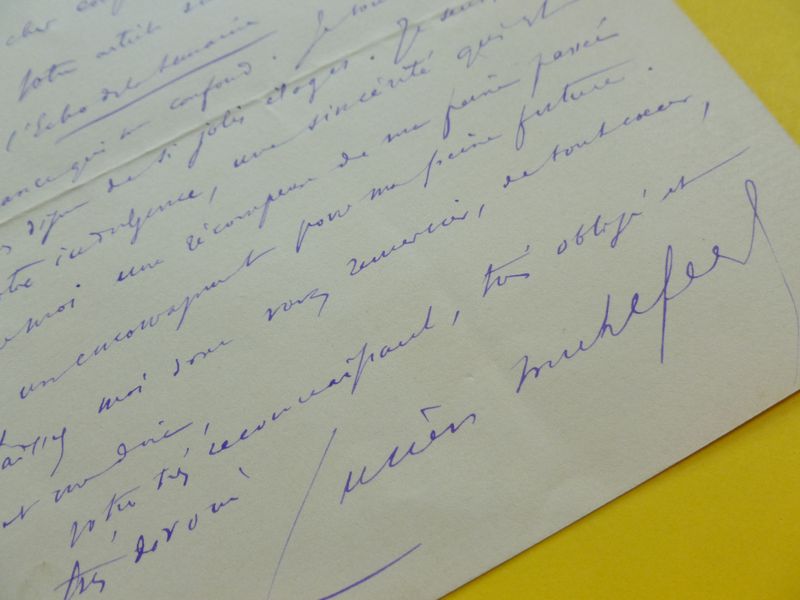 cher
Votre article
l'Echo de la Semaine
qui me confond. Je
digne de si jolis éloges. Je
indulgence, une sincérité qui est
moi une récompense de ma peine passée
un encouragement pour ma peine future.
moi donc vous remercier, de tout cœur,
et me dire,
votre très reconnaissant, très obligé et
très dévoué
Lucien Muhlfeld